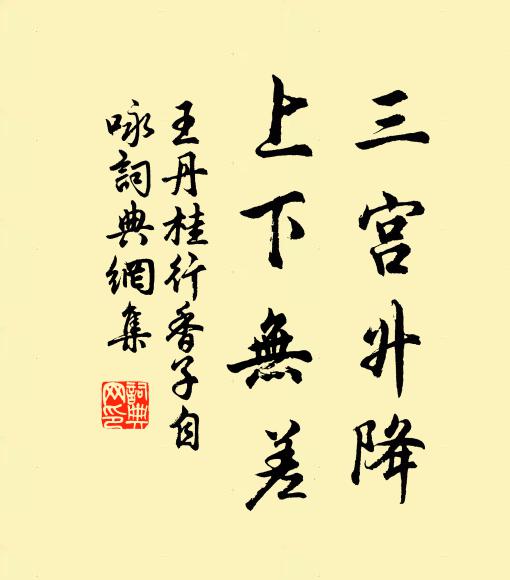 三宮升降
上下無差
王丹桂行香子自
咏詞典網集
詞典
网印